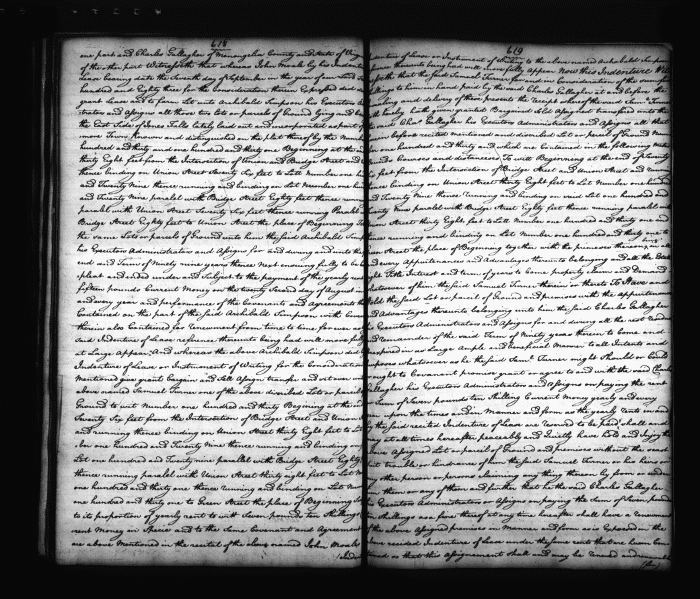 618
one part and Charles Gallagher of Monongelia County and State of Virg
of the other part Witnesseth that whereas John Moale by his Indenture
Lease bearing date the Seventh day of September in the year of our Lord
hundred and Eighty three for the Consideration therein Expressed did
grant Lease and to farm Let unto Archibald Simpson his Executors
trators and Assigns all those two lots or parcels of Ground lying and
the East Side of Jones Falls lately laid out and
more Town, Known and distinguished on the plat thereof by the Num
hundred and thirty and one hundred and thirty one Beginning at the
thirty Eight feet from the Intersection of Union and Bridge Street and
thence binding on Union Street Seventy Six feet to Lott number one
and Twenty Nine thence running and binding on Lott Number one hund
and Twenty Nine parallel with Bridge Street Eighty feet thence
parallel with Union Street Seventy Six feet thence running Parallel
Bridge Street Eighty feet to Union Street the place of Beginning To
the same Lots or parcels of Ground unto him the said Archibald Simp
his Executors Administrators and Assigns for and during and unto the
end and Term of Ninety nine years thence Next ensuing fully to be
pleat and ended under and Subject to the payment of the yearly
fifteen pounds Current Money on the twenty Second day of August
and every year and performance of the Covenants and Agreements
Contained on the part of the said Archibald Simpson with
therein also Contained for Renewment from time to time forever
said Indenture of Lease reference thereunto being had will more fully
at Large Appear, And whereas the above Archibald Simpson did
Indenture of Lease or Instrument of Writing for the Consideration
Mentioned give grant bargain and Sell Assign transfer and set over
above named Samuel Turner one of the above discribed Lots or parcels
Ground to wit number one hundred and thirty Beginning at the
Seventy Six feet from the Intersection of Bridge Street and Union
and running thence binding on Union Street thirty Eight feet to Lot
ber one hundred and Twenty Nine thence running and binding
Lot one hundred and Twenty nine parallel with Bridge Street Eighty
thence running parallel with Union Street thirty Eight feet to Lot
one hundred and thirty one thence running and binding on Lot Num
one hundred and thirty one to Union Street the place of Beginning
to its proportion of yearly rent to wit Seven pounds ten Shillings
rent Money in Specie and to the Same Covenant and Agreement
as above Mentioned in the recital of the above named John Moale
Inden
619
denture of Lease or Instrument of Writing to the above named Archibald Simpson
thereunto being had will more fully Appear Now this Indenture
seth that the said Samuel Turner for and in Consideration of the sum
Shillings to him in hand paid by the said Charles Gallagher at and before the
Sealing and delivery of these presents the receipt whereof the said Saml Turner
hath granted Bargained Sold Assigned transfered
the said Chas Gallagher his Executors Administrators and Assigns all that
before recited mentioned and discribed Lot or parcel of Ground Num
one hundred and thirty and which are Contained in the following metes
Bounds Courses and distances, To wit Beginning at the end of Seventy
Six feet from the Intersection of Bridge Street and Union Street and running
thence binding on Union Street thirty Eight feet to Lot Number one hundred
and Twenty Nine thence running and binding on said Lot one hundred and
Twenty Nine parallel with Bridge Street Eighty feet thence running parallel
Union Street thirty Eight feet to Lott Number one hundred and thirty one
thence running and binding on Lot Number one hundred and thirty one to
Street the place of Beginning together with the premises thereon and all
every Appurtenances and Advantages thereunto belonging and all the Estate
right Title Interest and term of years to Come property Claim and Demand
whatsoever of him the said Samuel Turner therein or thereto To Have and
Hold the said Lot or parcel of Ground and premises with the appurtenan
and Advantages thereunto belonging unto him the said Charles Gallagher
his Executors Administrators and Assigns for and during all the rest Residue
and Remainder of the said Term of Ninety Nine years therein to Come and
unexpired in as Large Ample and Beneficial Manner to all Intents and
purposes whatsoever as he the said Saml Turner might Should or Could
ought to Covenant promise grant or agree to and with the said Charles
Gallagher his Executors Administrators and Assigns on paying the rent
Sum of Seven pounds ten Shilling Current Money yearly and every
year upon the times and in Manner and form as the yearly rents in and
by the said recited Indenture of Lease are reserved to be paid shall and
may at all times hereafter peaceably and Quietly have hold and enjoy the
above Assigned Lot or parcel of Ground and premises without the
let trouble or hindrance of him the said Samuel Turner or his heirs or
any other person or persons Claiming or any thing thereon by from or under
him them or any of them and further that he the said Charles Gallagher
his Executors Administrators or Assigns on paying the Sum of Seven pounds
ten Shillings one fine thereof at any time hereafter shall have a renewment
of the above Assigned premises in Manner and form as is Expressed in the
above recited Indenture of Lease under the same rents that are herein Con
tained so that this Assignment shall and may be Revised and